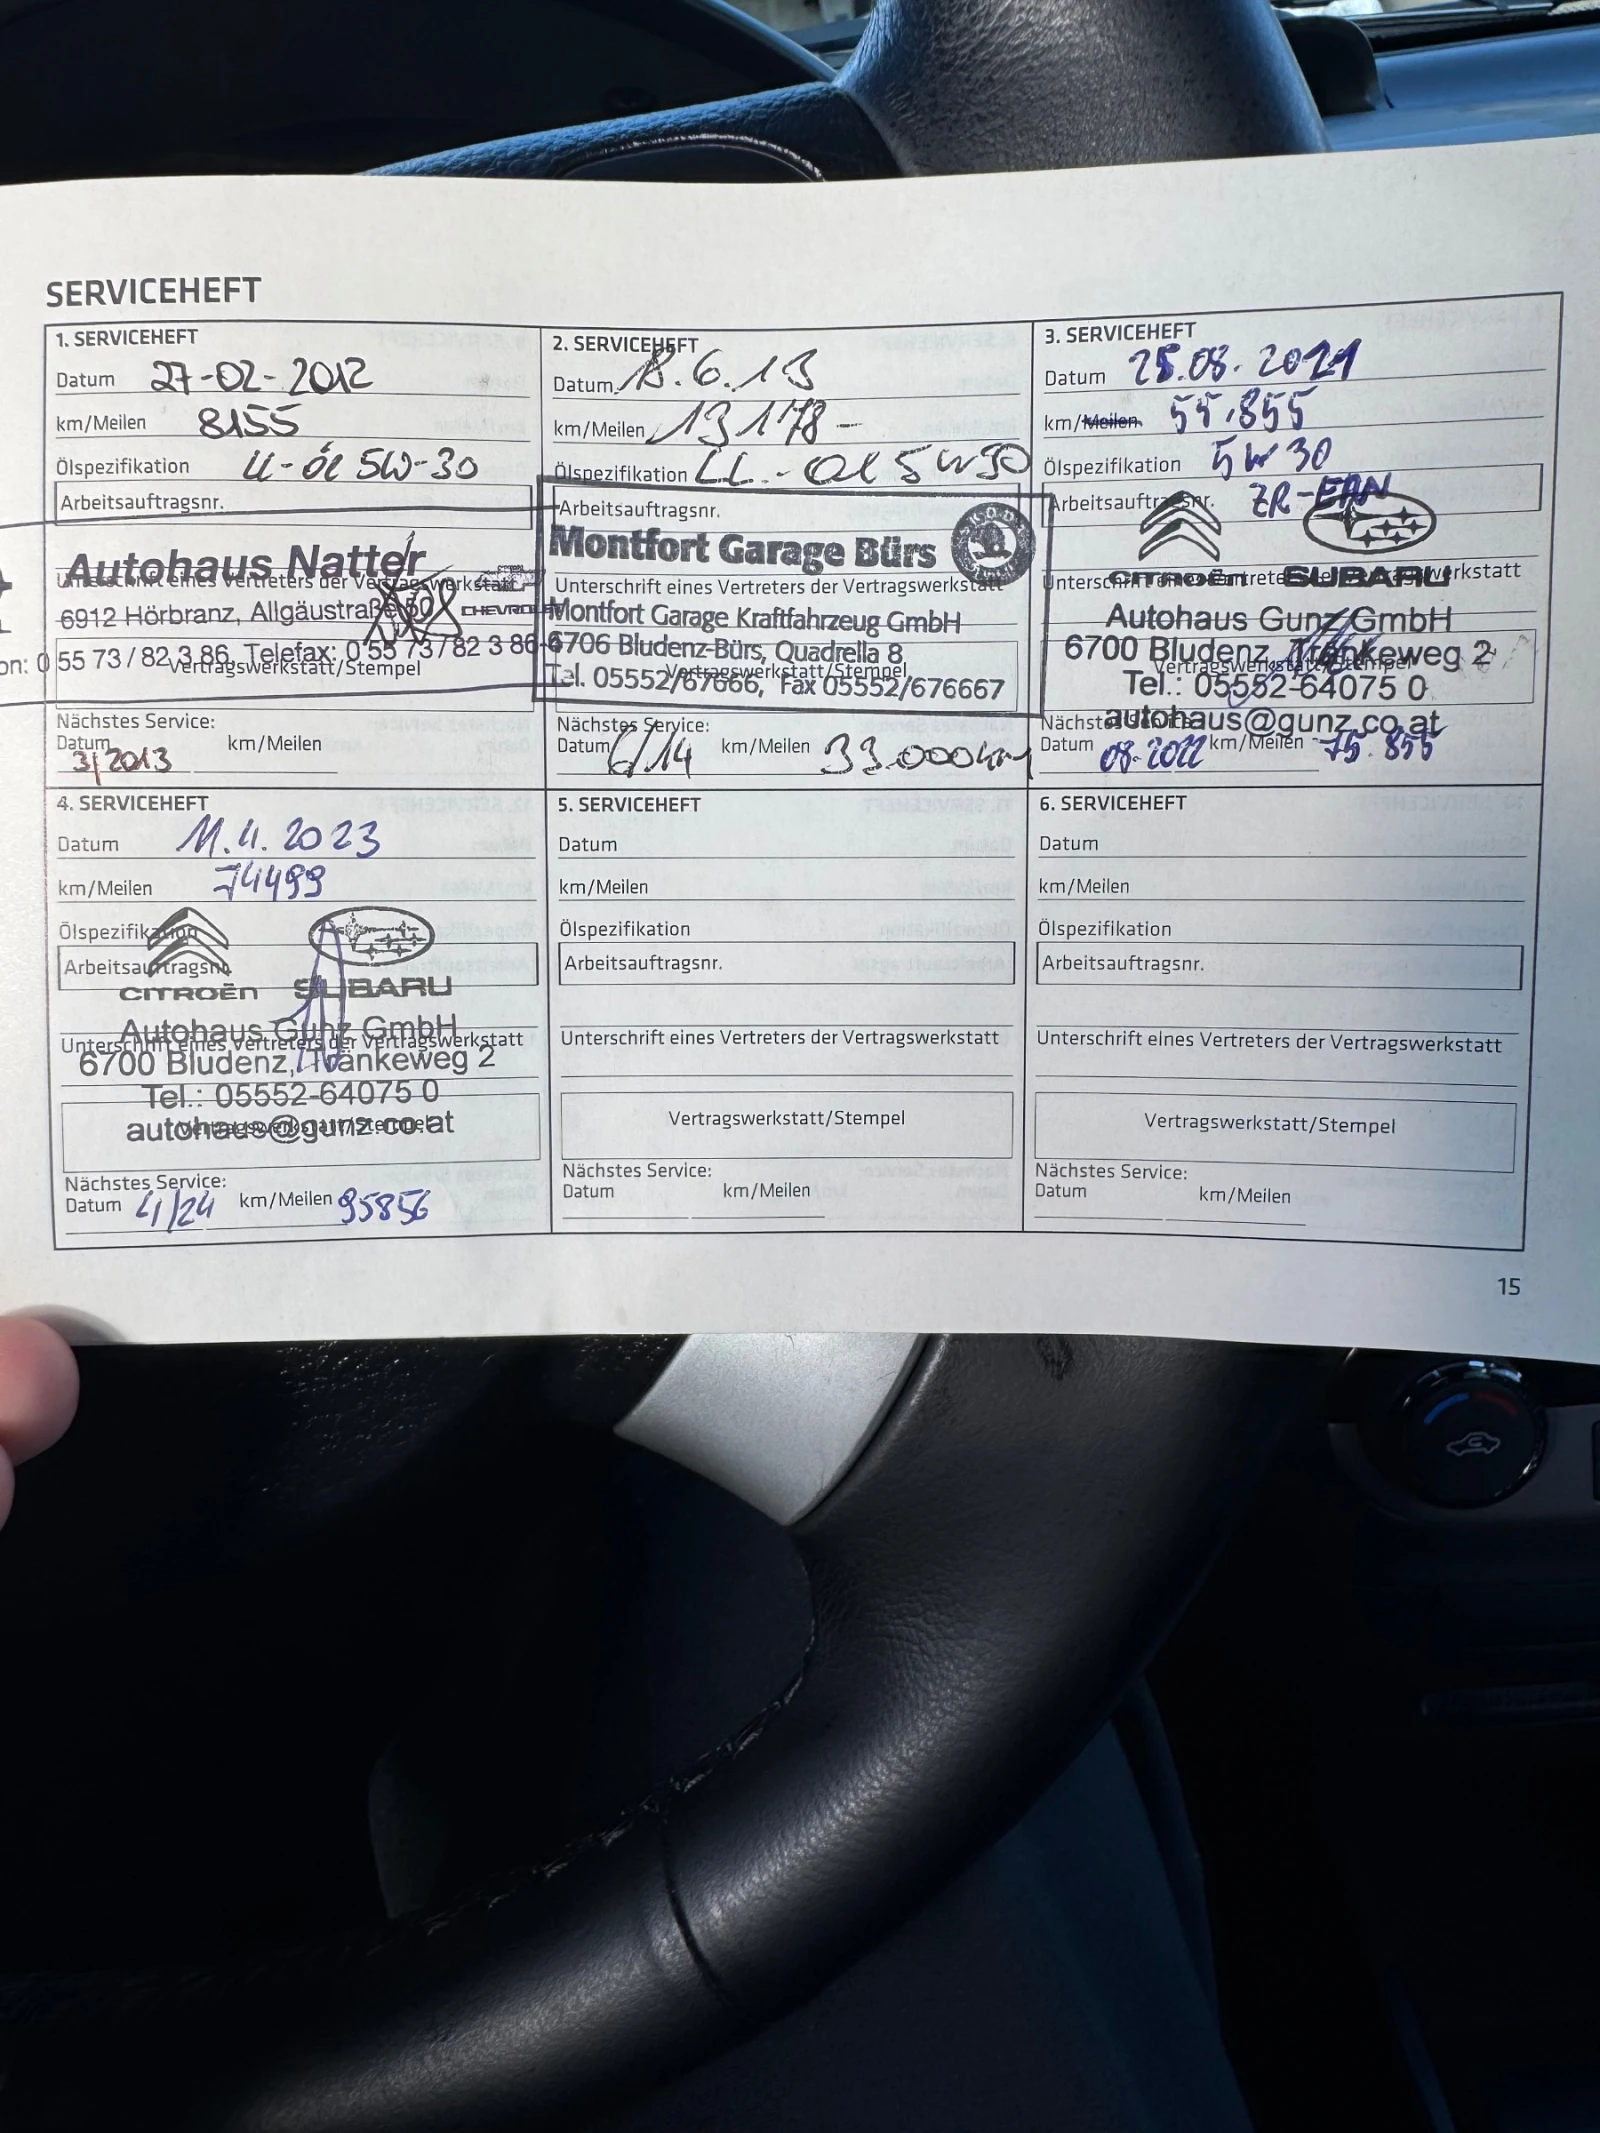 SERVICEHEFT
1. SERVICEHEFT
Datum 27-02-2012
km/Meilen 8155
Ölspezifikation LL-Öl 5W-30
Arbeitsauftragsnr.
Autohaus Natter
Unterschrift eines Vertreters der Vertragswerkstatt
6912 Hörbranz, Allgäustraße
CHEVROLET
on: 0 55 73 / 82 3 86, Telefax: 0 55 73 / 82 3 86-6
Vertragswerkstatt/Stempel
Nächstes Service:
Datum km/Meilen
3/2013
2. SERVICEHEFT
Datum 18.6.13
km/Meilen 13178-
Ölspezifikation LL-Öl 5W30
Arbeitsauftragsnr.
Montfort Garage Bürs
Unterschrift eines Vertreters der Vertragswerkstatt
Montfort Garage Kraftfahrzeug GmbH
6706 Bludenz-Bürs, Quadrella 8
Vertragswerkstatt/Stempel
Tel. 05552/67666, Fax 05552/676667
Nächstes Service:
Datum 6/14 km/Meilen 33.000km
3. SERVICEHEFT
Datum 25.08.2021
km/Meilen 55.855
Ölspezifikation 5W30
Arbeitsauftragsnr.
CITROËN SUBARU
Unterschrift eines Vertreters der Vertragswerkstatt
Autohaus Gunz GmbH
6700 Bludenz, Tränkeweg 2
Vertragswerkstatt/Stempel
Tel.: 05552-64075 0
autohaus@gunz.co.at
Nächstes Service:
Datum 08-2022 km/Meilen 75.855
4. SERVICEHEFT
Datum 11.4.2023
km/Meilen 74499
Ölspezifikation
Arbeitsauftragsnr.
CITROËN SUBARU
Autohaus Gunz GmbH
Unterschrift eines Vertreters der Vertragswerkstatt
6700 Bludenz, Tränkeweg 2
Tel.: 05552-64075 0
autohaus@gunz.co.at
Vertragswerkstatt/Stempel
Nächstes Service:
Datum 4/24 km/Meilen 95856
5. SERVICEHEFT
Datum
km/Meilen
Ölspezifikation
Arbeitsauftragsnr.
Unterschrift eines Vertreters der Vertragswerkstatt
Vertragswerkstatt/Stempel
Nächstes Service:
Datum km/Meilen
6. SERVICEHEFT
Datum
km/Meilen
Ölspezifikation
Arbeitsauftragsnr.
Unterschrift eines Vertreters der Vertragswerkstatt
Vertragswerkstatt/Stempel
Nächstes Service:
Datum km/Meilen
15